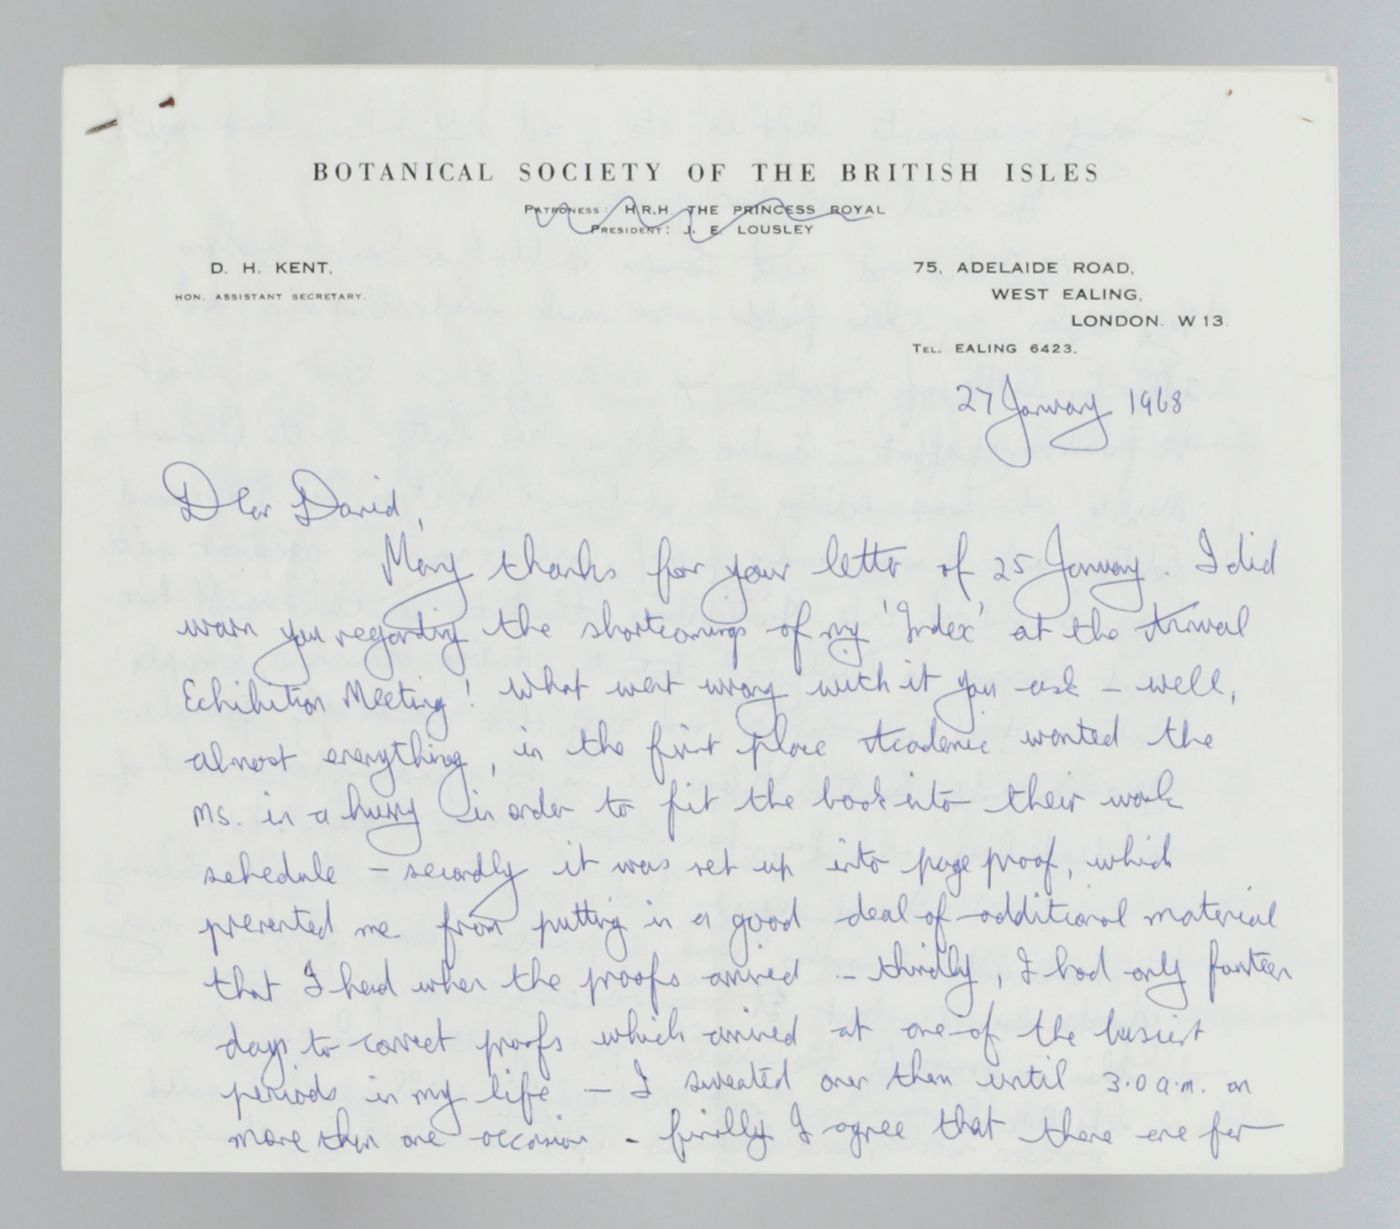 BOTANICAL SOCIETY OF THE BRITISH ISLES
PATRONESS: H.R.H. THE PRINCESS ROYAL
PRESIDENT: J. E. LOUSLEY
D. H. KENT,
HON. ASSISTANT SECRETARY.
75, ADELAIDE ROAD,
WEST EALING,
LONDON. W 13.
TEL. EALING 6423.
27 January 1968
Dear David,
Many thanks for your letter of 25 January. I did
warn you regarding the shortcomings of my 'Index' at the Annual
Exhibition Meeting! What went wrong with it you ask – well,
almost everything, in the first place Academic wanted the
MS. in a hurry in order to fit the book into their work
schedule – secondly it was set up into page proof, which
prevented me from putting in a good deal of additional material
that I had when the proofs arrived – thirdly, I had only fourteen
days to correct proofs which arrived at one of the busiest
periods in my life – I sweated over them until 3.0 a.m. on
more than one occasion – finally I agree that there are far